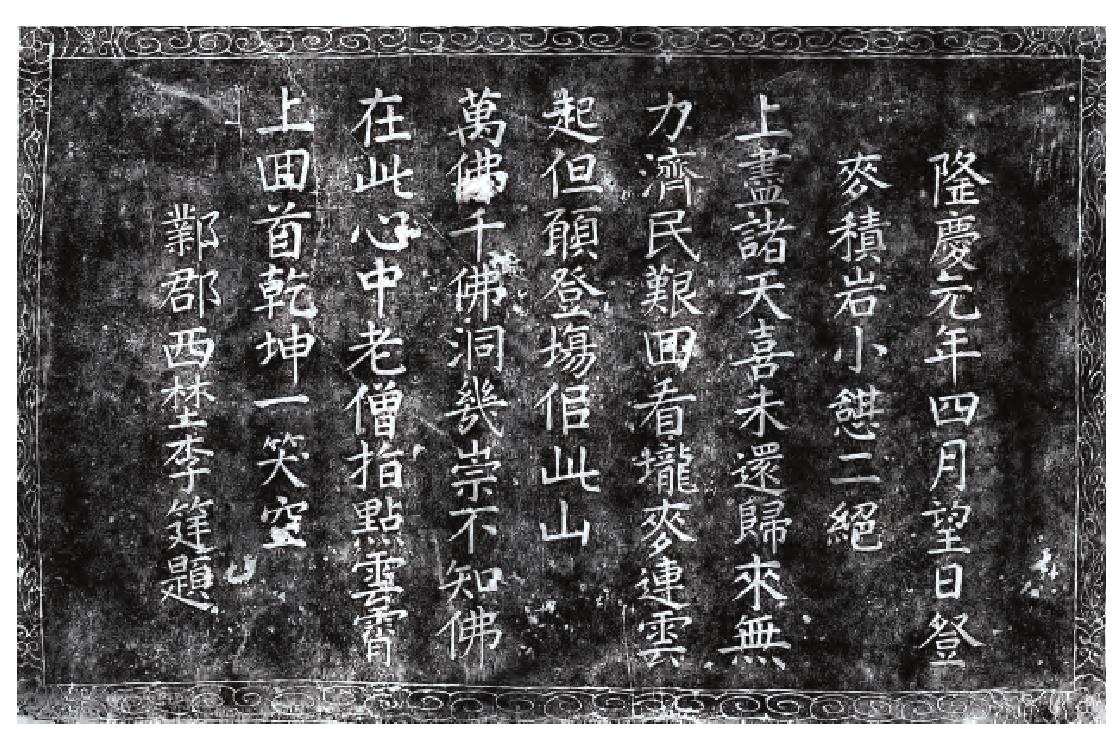 隆慶元年四月望日登
麥積岩小憇二絕
上盡諸天喜未還歸來無
力濟民艱囬看壠麥連雲
起但願登塲佀此山
萬佛千佛洞幾崇不知佛
在此心中老僧指點雲霄
上囬首乾坤一笑空
鄴郡西埜李題